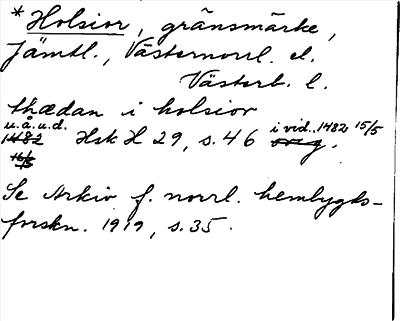 * Holsior, gränsmärke,
Jämtl., Västernorrl. el.
Västerb. l.
thædan i holsior
u.å.u.d. i vid. 1482 15/5
1482 Hsk H 29, s. 46 orig.
15/5
Se Arkiv f. norrl. hembygds-
forskn. 1919, s. 35.